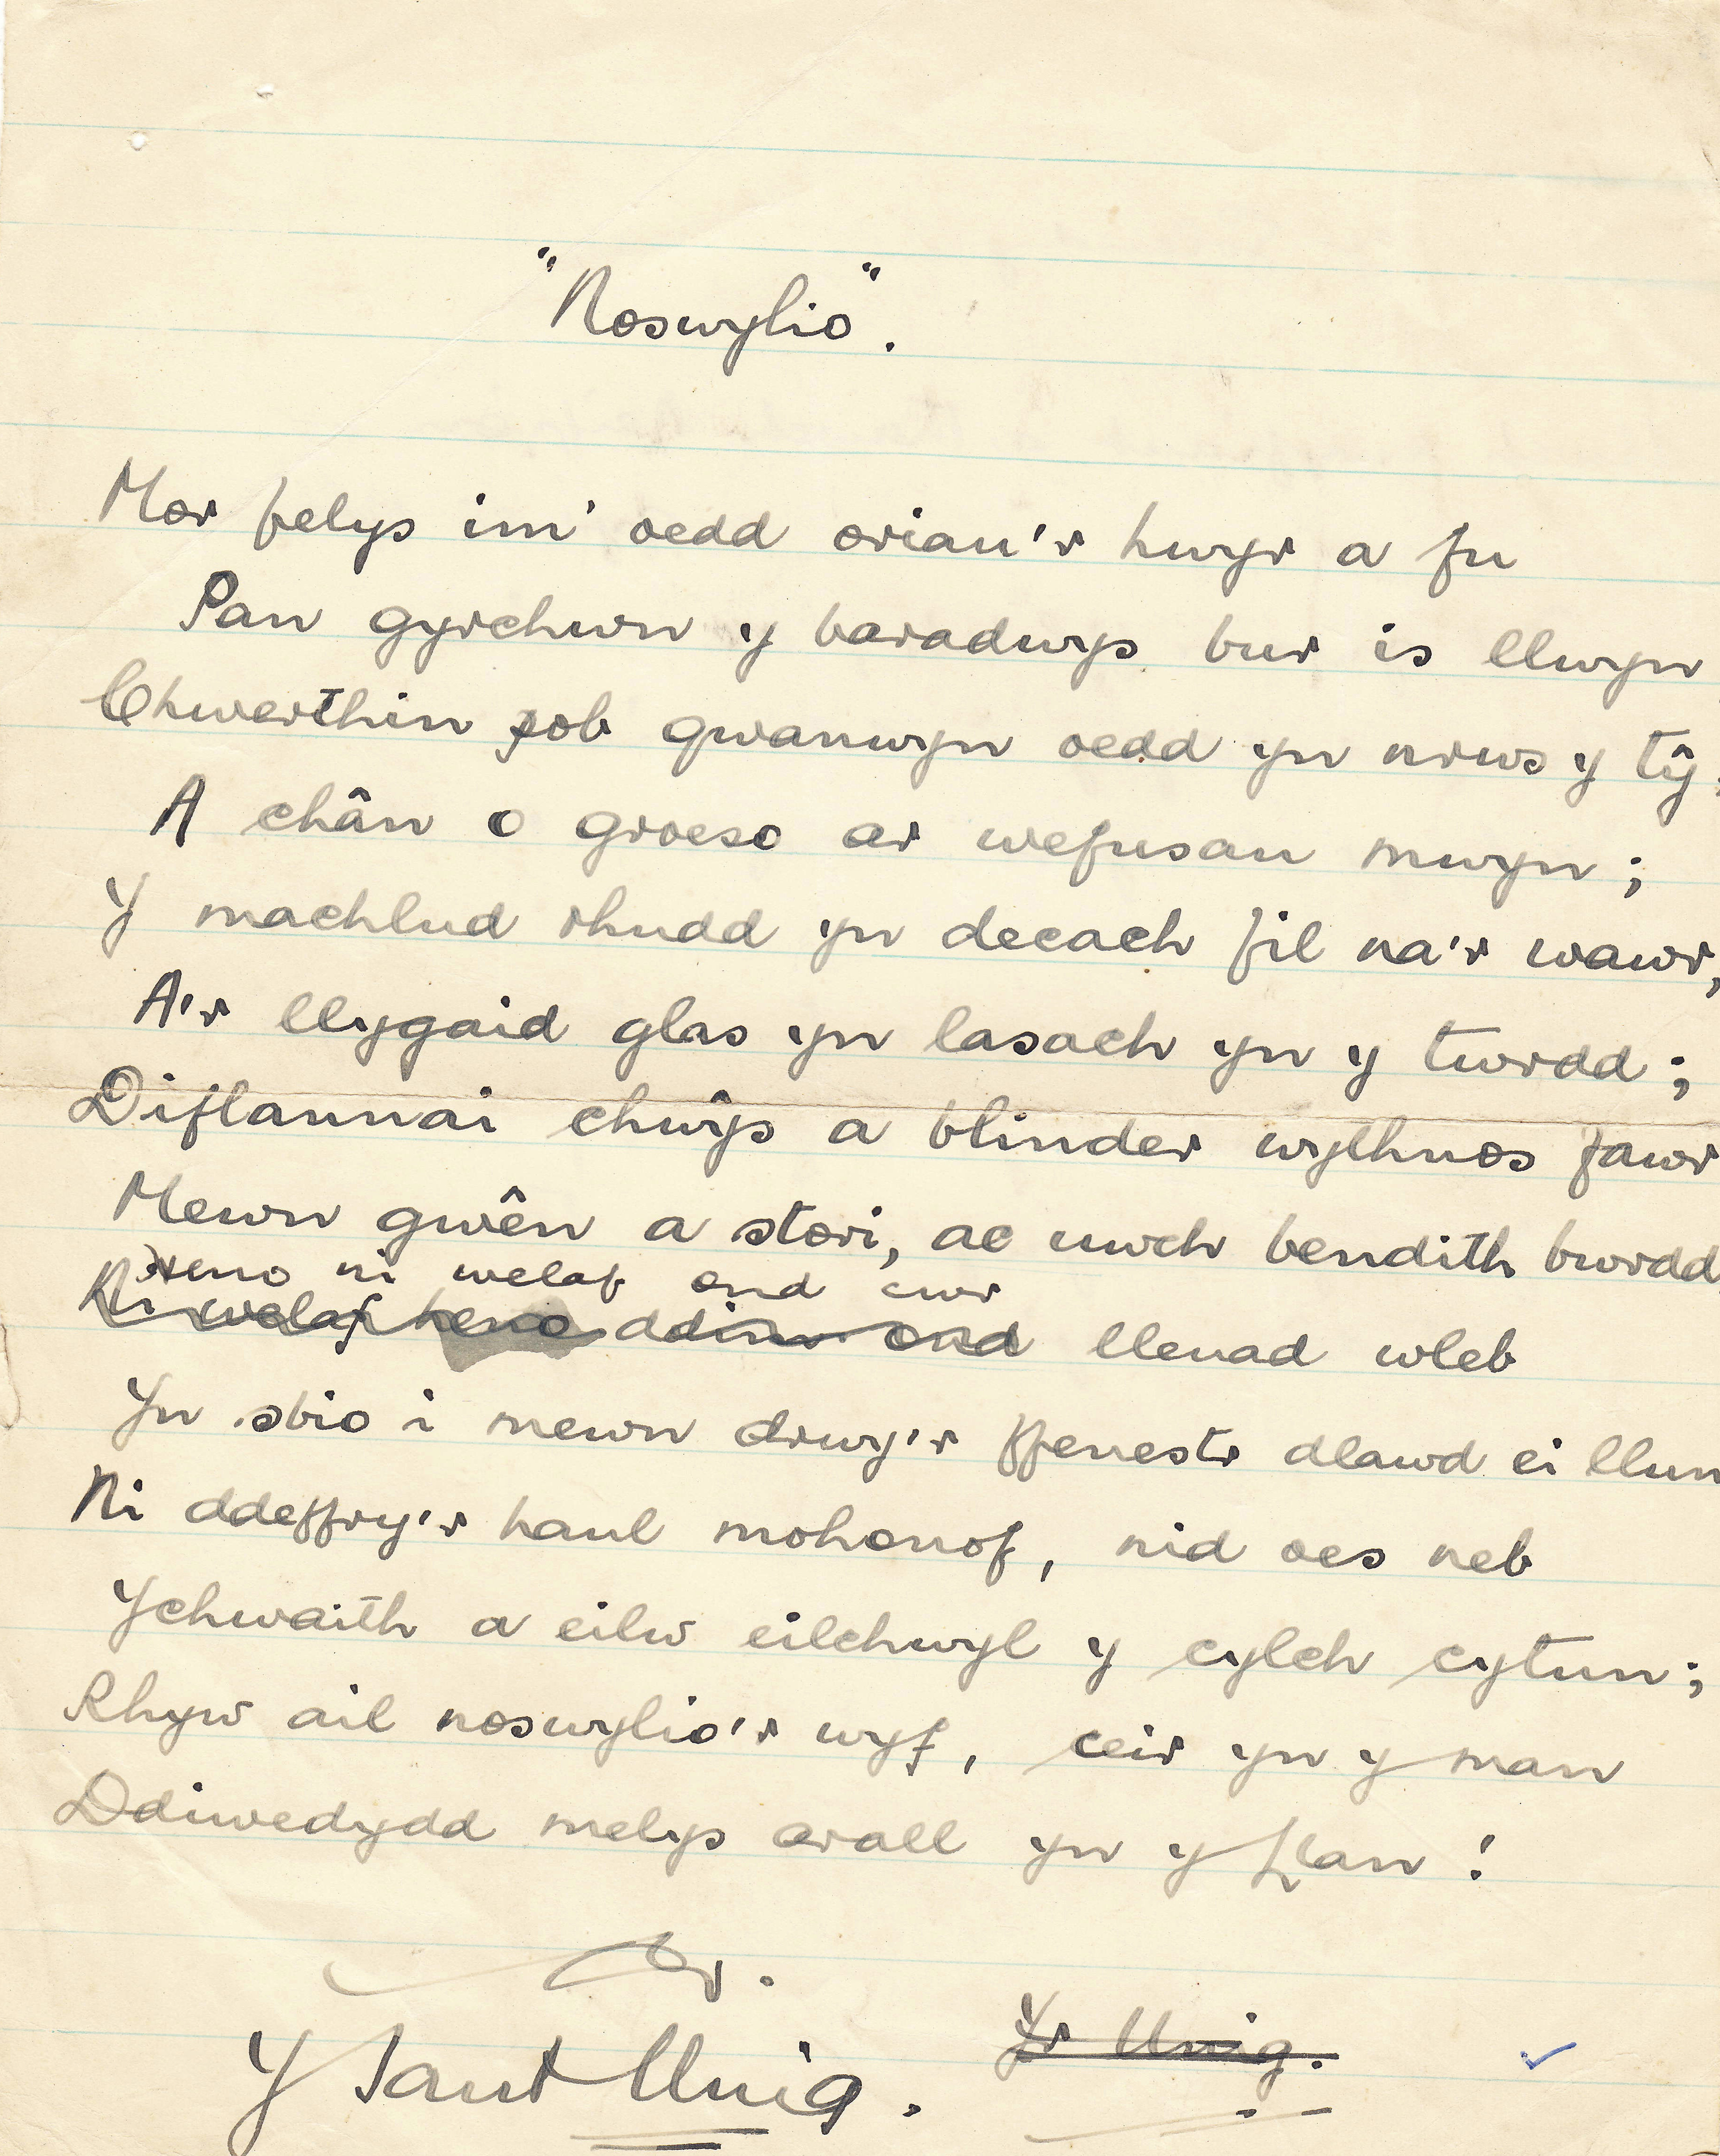 "Noswylio".
Mor felys im' oedd oriau'r hwyr a fu
Pan gyrchwn y baradwys bur is llwyn
Chwerthin pob gwanwyn oedd yn nrws y tŷ,
A chân o groeso ar wefusau mwyn;
Y machlud rhudd yn decach fil na'r wawr,
A'r llygaid glas yn lasach yn y twrdd;
Diflannai chwŷs a blinder wythnos fawr
Mewn gwên a stori, ac uwch bendith bwrdd
Heno ni welaf ond cwr
Ni welaf heno ddim ond lleuad wleb
Yn sbio i mewn drwy'r ffenestr dlawd ei llun
Ni ddeffry'r haul mohonof, nid oes neb
Ychwaith a eilw eilchwyl y cylch cytun;
Rhyw ail noswylio'r wyf, ceir yn y man
Ddiwedydd melys arall yn y Llan!
Y Sant Unig. Yr Unig.